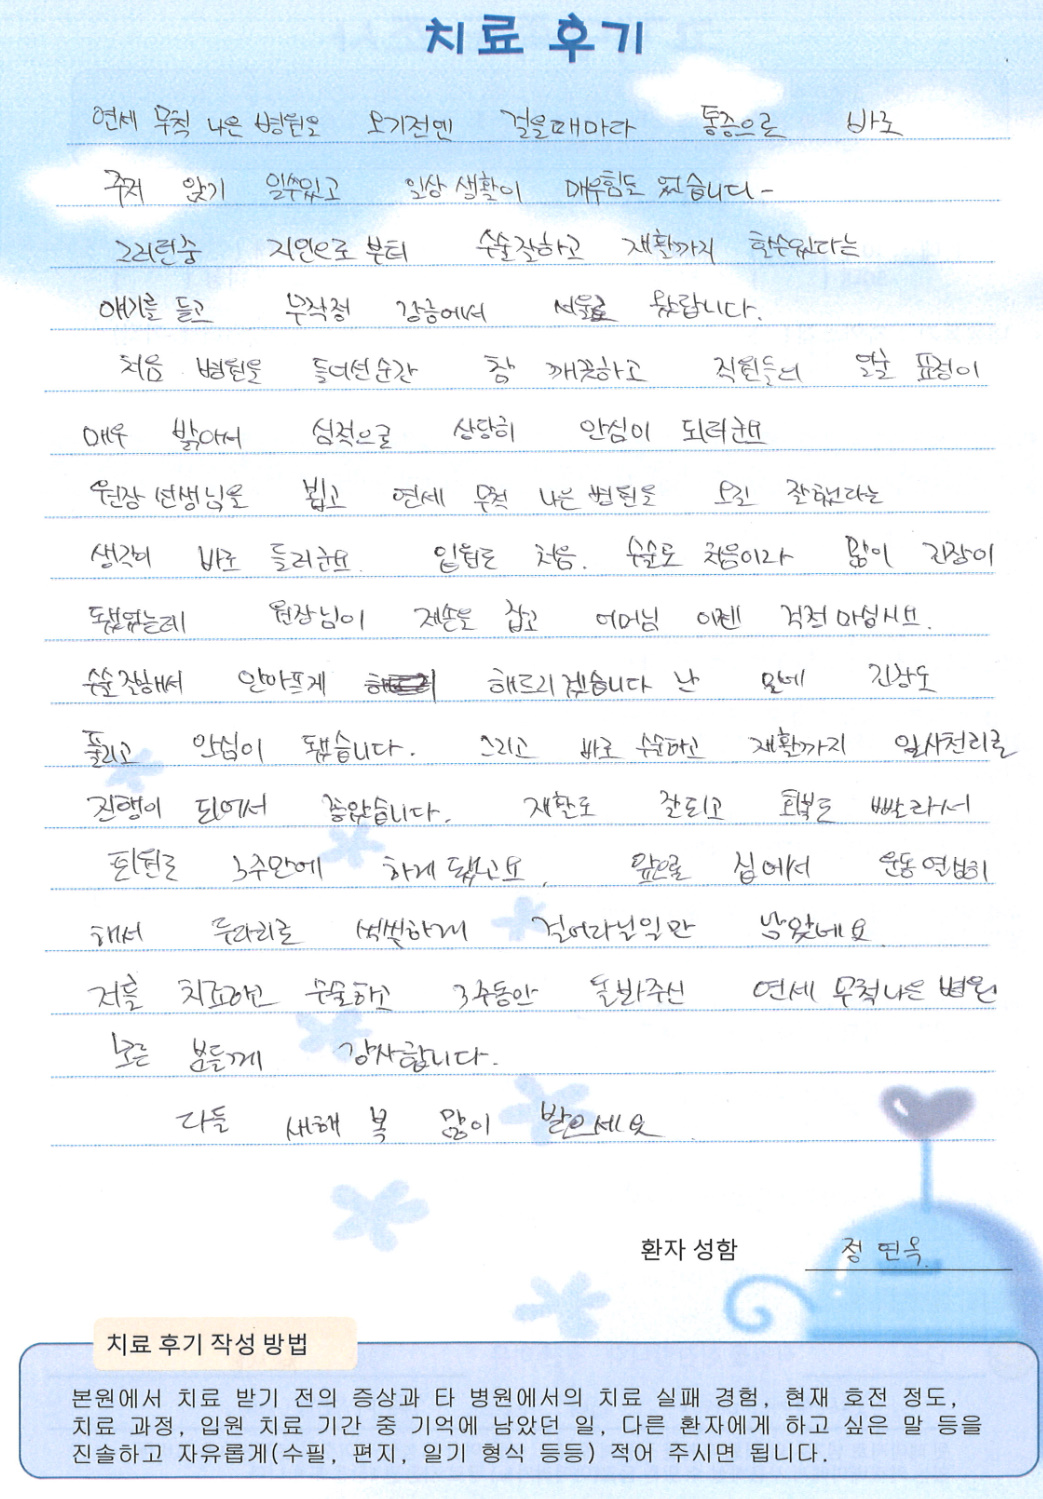 치료 후기
연세 무척 나은 병원을 오기전엔 걸을때마다 통증으로 바로
주저 앉기 일수있고 일상 생활이 매우힘도 었습니다-
그러던중 지인으로 부터 수술잘하고 재활까지 할수있다는
얘기를 듣고 무작정 강릉에서 서울로 왔답니다.
처음 병원을 들어선순간 참 깨끗하고 직원들의 얼굴 표정이
매우 밝아서 심적으로 상당히 안심이 되더군요
원장 선생님을 뵙고 연세 무척 나은 병원을 오길 잘했다는
생각이 바로 들더군요. 입원도 처음. 수술도 처음이라 많이 긴장이
됐었는데 원장님이 제손을 잡고 어머님 이젠 걱정 마십시요.
수술잘해서 안아프게 해드리겠습니다 난 말에 긴장도
풀리고 안심이 됐습니다. 그리고 바로 수술하고 재활까지 일사천리로
진행이 되어서 좋았습니다. 재활도 잘되고 회복도 빨라서
퇴원도 3주만에 하게 됐고요, 앞으로 집에서 운동 열심히
해서 두다리로 씩씩하게 걸어다닐일만 남았네요
저를 치료하고 수술하고 3주동안 돌봐주신 연세 무척나은 병원
모든 분들께 감사합니다.
다들 새해 복 많이 받으세요
환자 성함 정 연옥
치료 후기 작성 방법
본원에서 치료 받기 전의 증상과 타 병원에서의 치료 실패 경험, 현재 호전 정도,
치료 과정, 입원 치료 기간 중 기억에 남았던 일, 다른 환자에게 하고 싶은 말 등을
진솔하고 자유롭게(수필, 편지, 일기 형식 등등) 적어 주시면 됩니다.